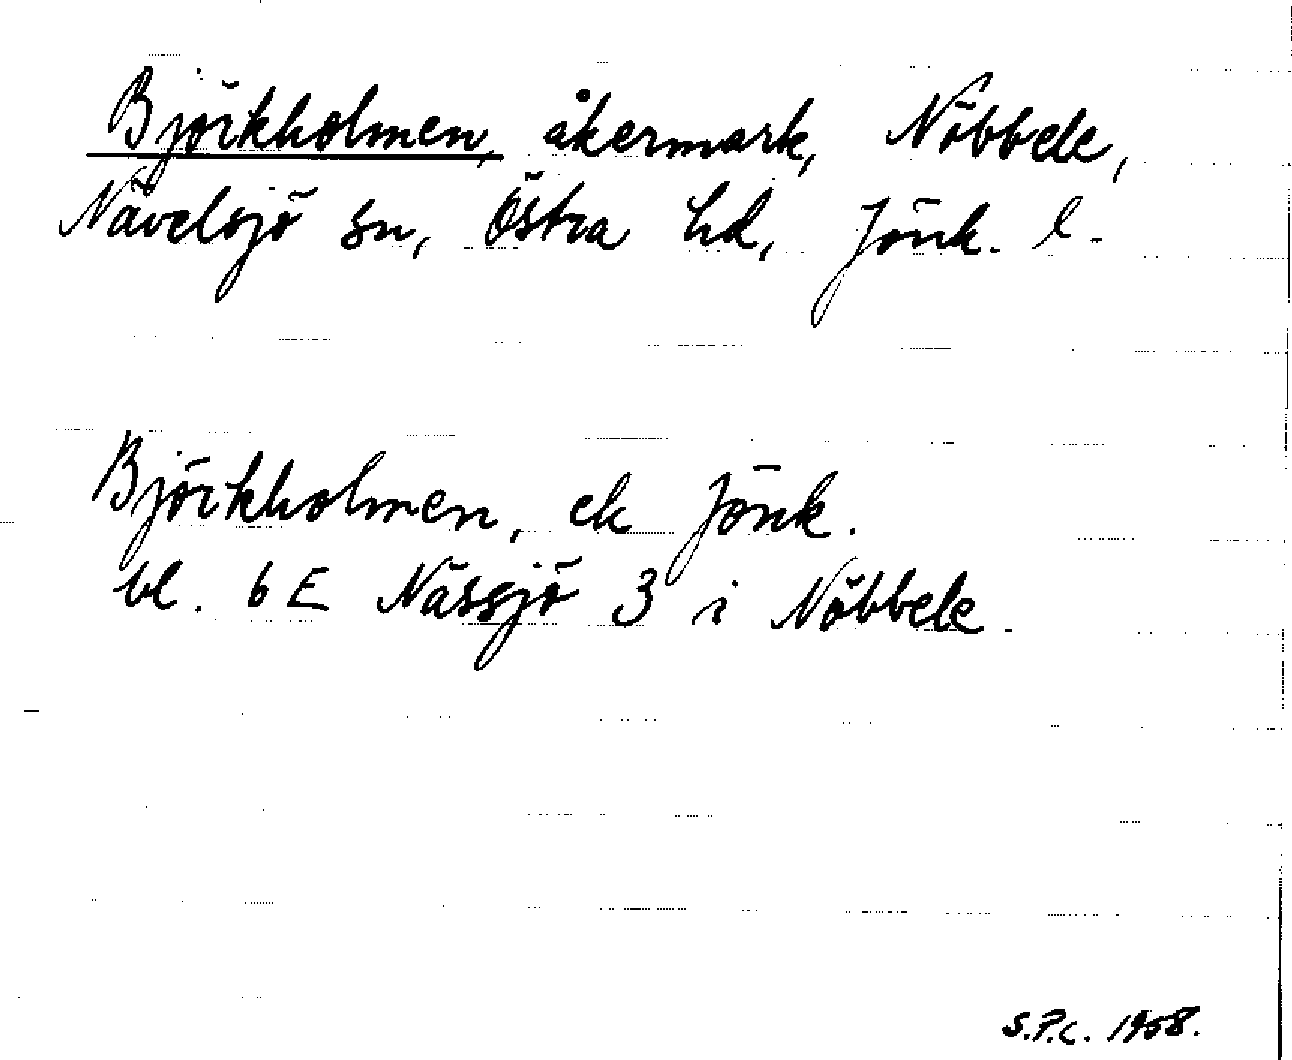 Björkholmen, åkermark, Nöbbele,
Nävelsjö sn, Östra hd, Jönk. l.
Björkholmen, ek Jönk.
bl. 6 E Nässjö 3 i Nöbbele.
S.P.C. 1958.